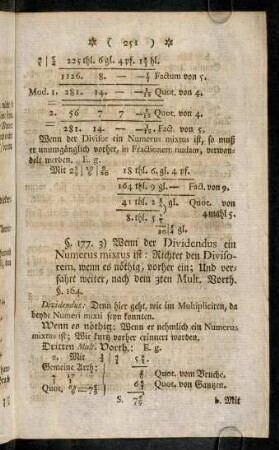 * ( 251 ) *
225 thl. 6 gl. 4 pf. 1 hl.
1126. 8. — Factum von 5.
Mod. 1. 281. 14. — Quot. von 4.
2. 56 7 7 Quot. von 4.
281. 14. — Fact. von 5.
Wenn der Divisor ein Numerus mixtus ist, so muß
er unumgänglich vorher, in Fractionem nudam, verwan-
delt werden. E. g.
Mit 18 thl. 6 gl. 4 pf.
164 thl. 9 gl. — Fact. von 9.
41 thl. gl. Quot. von
8. thl. gl. 4mahl 5.
§. 177. 3) Wenn der Dividendus ein
Numerus mixtus ist: Richtet den Diviso-
rem, wenn es nöthig, vorher ein; Und ver-
fahrt weiter, nach dem 3ten Mult. Vorth.
§. 164.
Dividendus: Denn hier geht, wie im Multipliciren, da
beyde Numeri mixti seyn konnten.
Wenn es nöthig: Wenn er nehmlich ein Numerus
mixtus ist; Wie kurtz vorher erinnert worden.
Dritten Mult. Vorth.: E. g.
a. Mit
Gemeine Arth: Quot. vom Bruche.
Quot. Quot. von Gantzen.
S. b. Mit